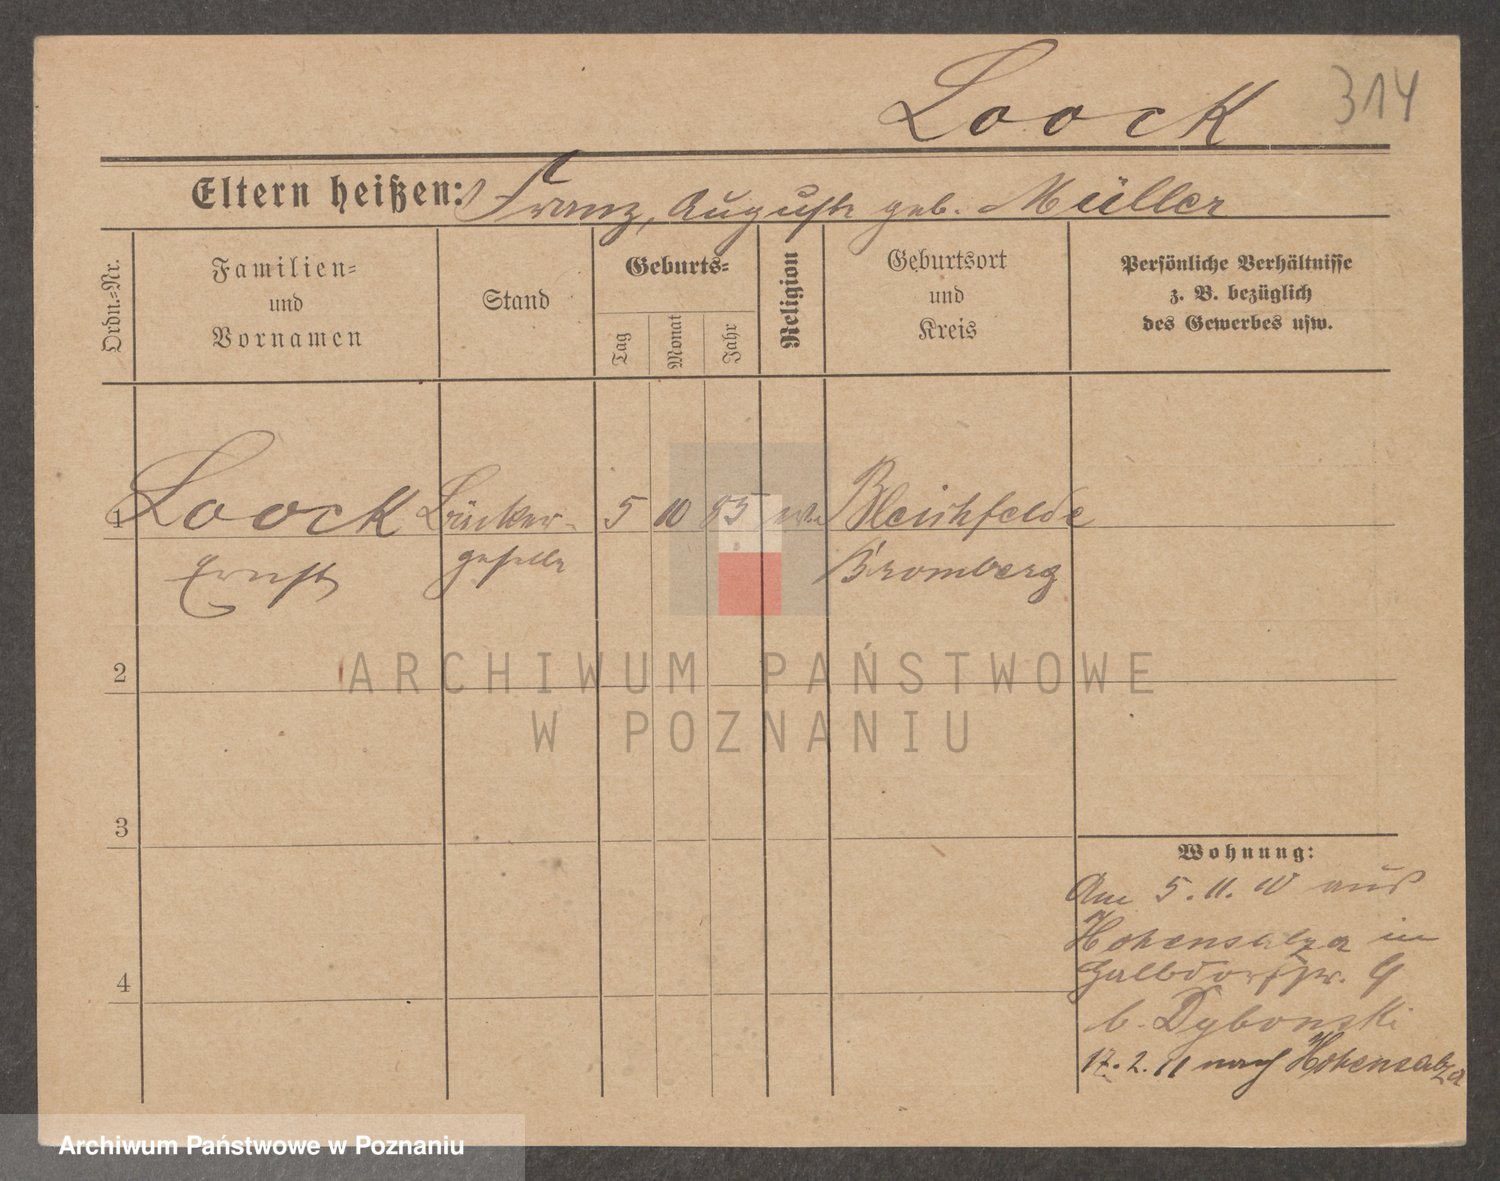 Loock 314
Eltern heißen: Franz, Auguste geb. Müller
Ordn.=Nr.
Familien=
und
Vornamen
Stand
Geburts=
Tag
Monat
Jahr
Religion
Geburtsort
und
Kreis
Persönliche Verhältnisse
z. B. bezüglich
des Gewerbes usw.
1 Loock Bäcker- 5 10 85 Bleichfelde
Ernst geselle Bromberg
2
ARCHIWUM PAŃSTWOWE
W POZNANIU
3
4
Wohnung:
Am 5. 11. 10 aus
Hohensalza in
9
b. Dybonski
17. 2. 11 nach Hohensalza
Archiwum Państwowe w Poznaniu